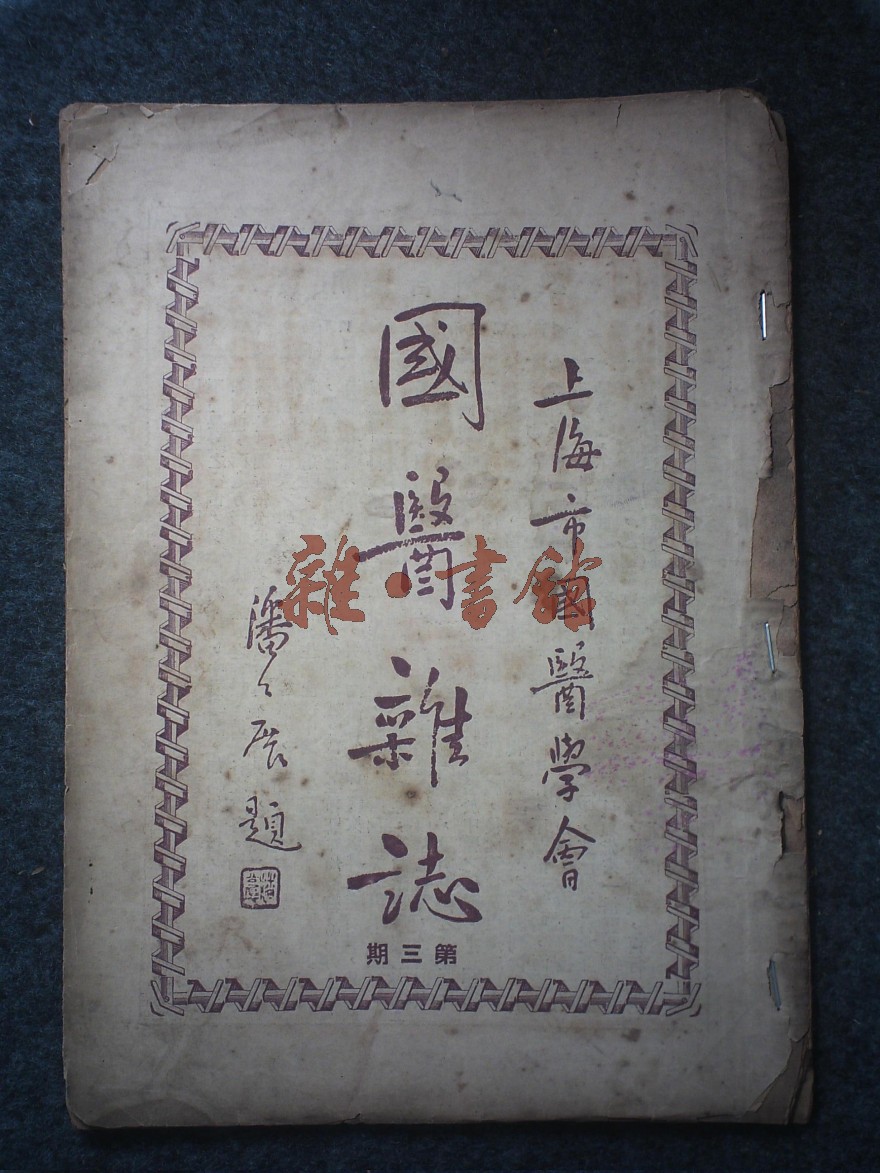 上海市國醫學會
國醫雜誌
潘公展題
第三期
雜·書館